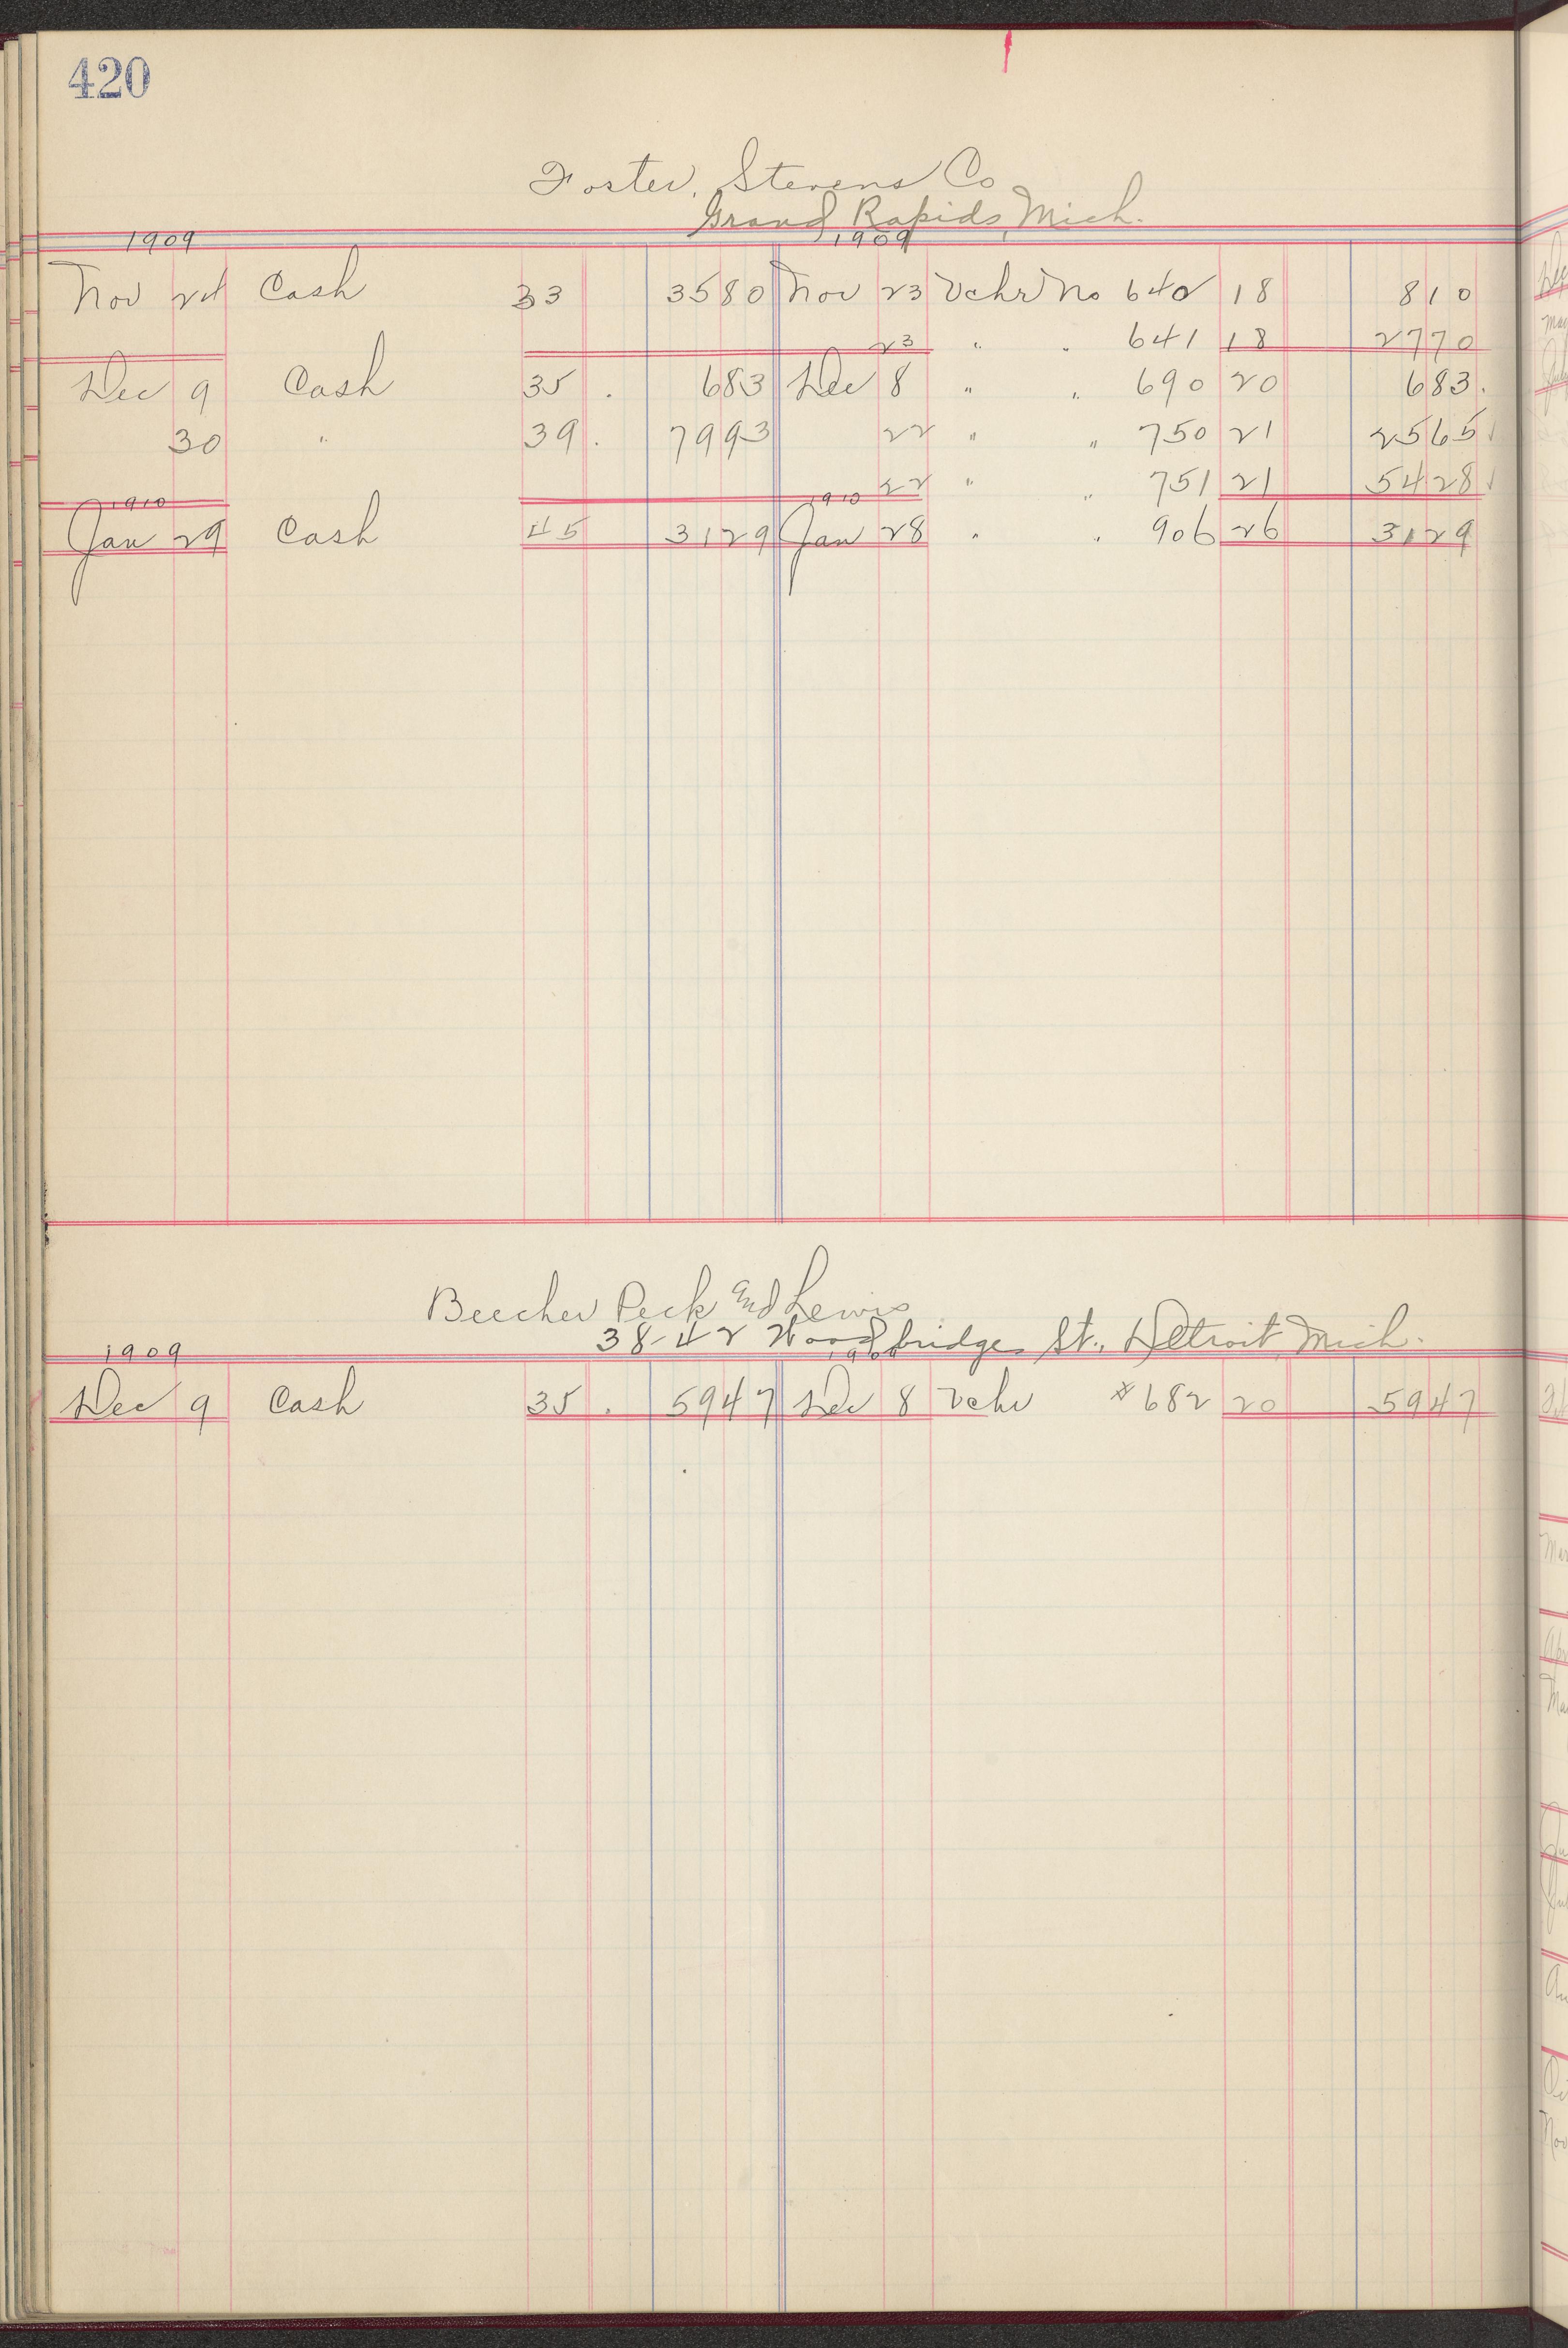 420
Foster, Stevens Co
Grand Rapids, Mich.
1909 1909
Nov 24 Cash 33 3580 Nov 23 Vchr No 640 18 810
23 " " 641 18 2770
Dec 9 Cash 35 . 683 Dec 8 " " 690 20 683.
30 " 39. 7993 22 " " 750 21 2565 ✓
22 " " 751 21 5428 ✓
1910 1910
Jan 29 Cash 45 3129 Jan 28 " " 906 26 3129
Beecher Peck and Lewis
38-42 Woodbridge St., Detroit, Mich.
1909 1909
Dec 9 Cash 35 . 5947 Dec 8 Vchr # 682 20 5947